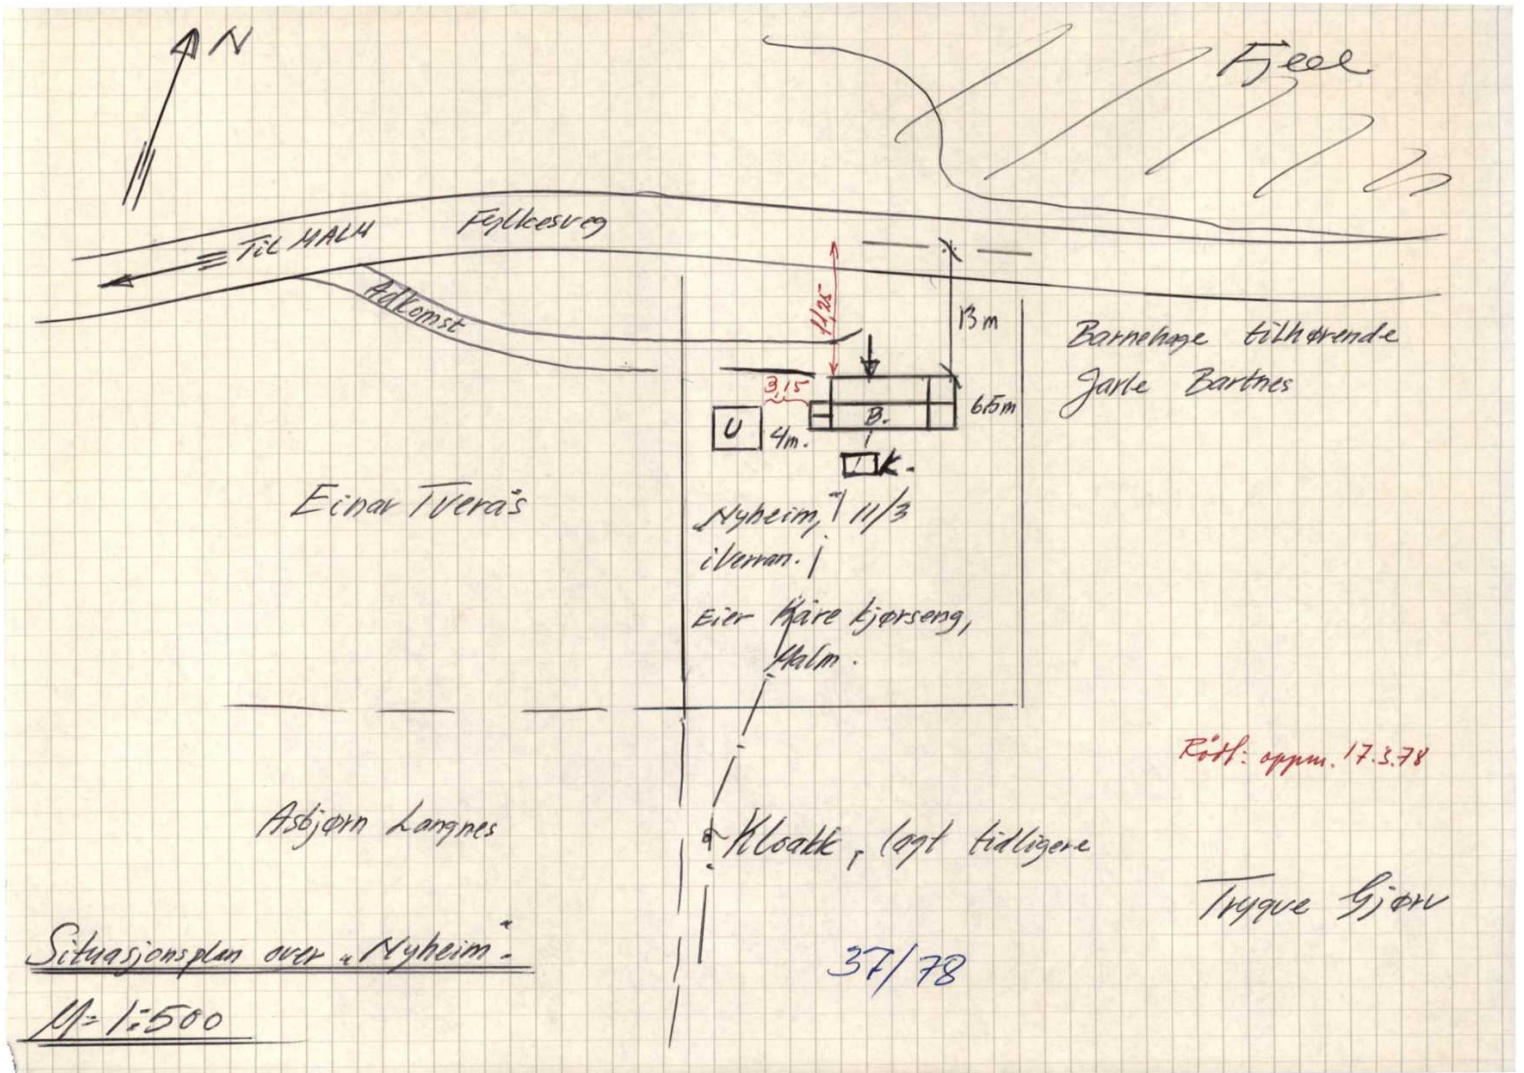 N
Fjell
Til MALM
Fylkesveg
Adkomst
11,25
13 m
Barnehage tilhørende
Jarle Bartnes
3,15
6.5m
U
4m.
B.
K.
Einar Tverås
„Nyheim," 11/3
i Verran.
Eier Kåre Kjørseng,
Malm.
Rødt: oppm. 17.3.78
Asbjørn Langnes
Kloakk, lagt tidligere
Trygve Gjørv
Situasjonsplan over „Nyheim".
37/78
M= 1:500